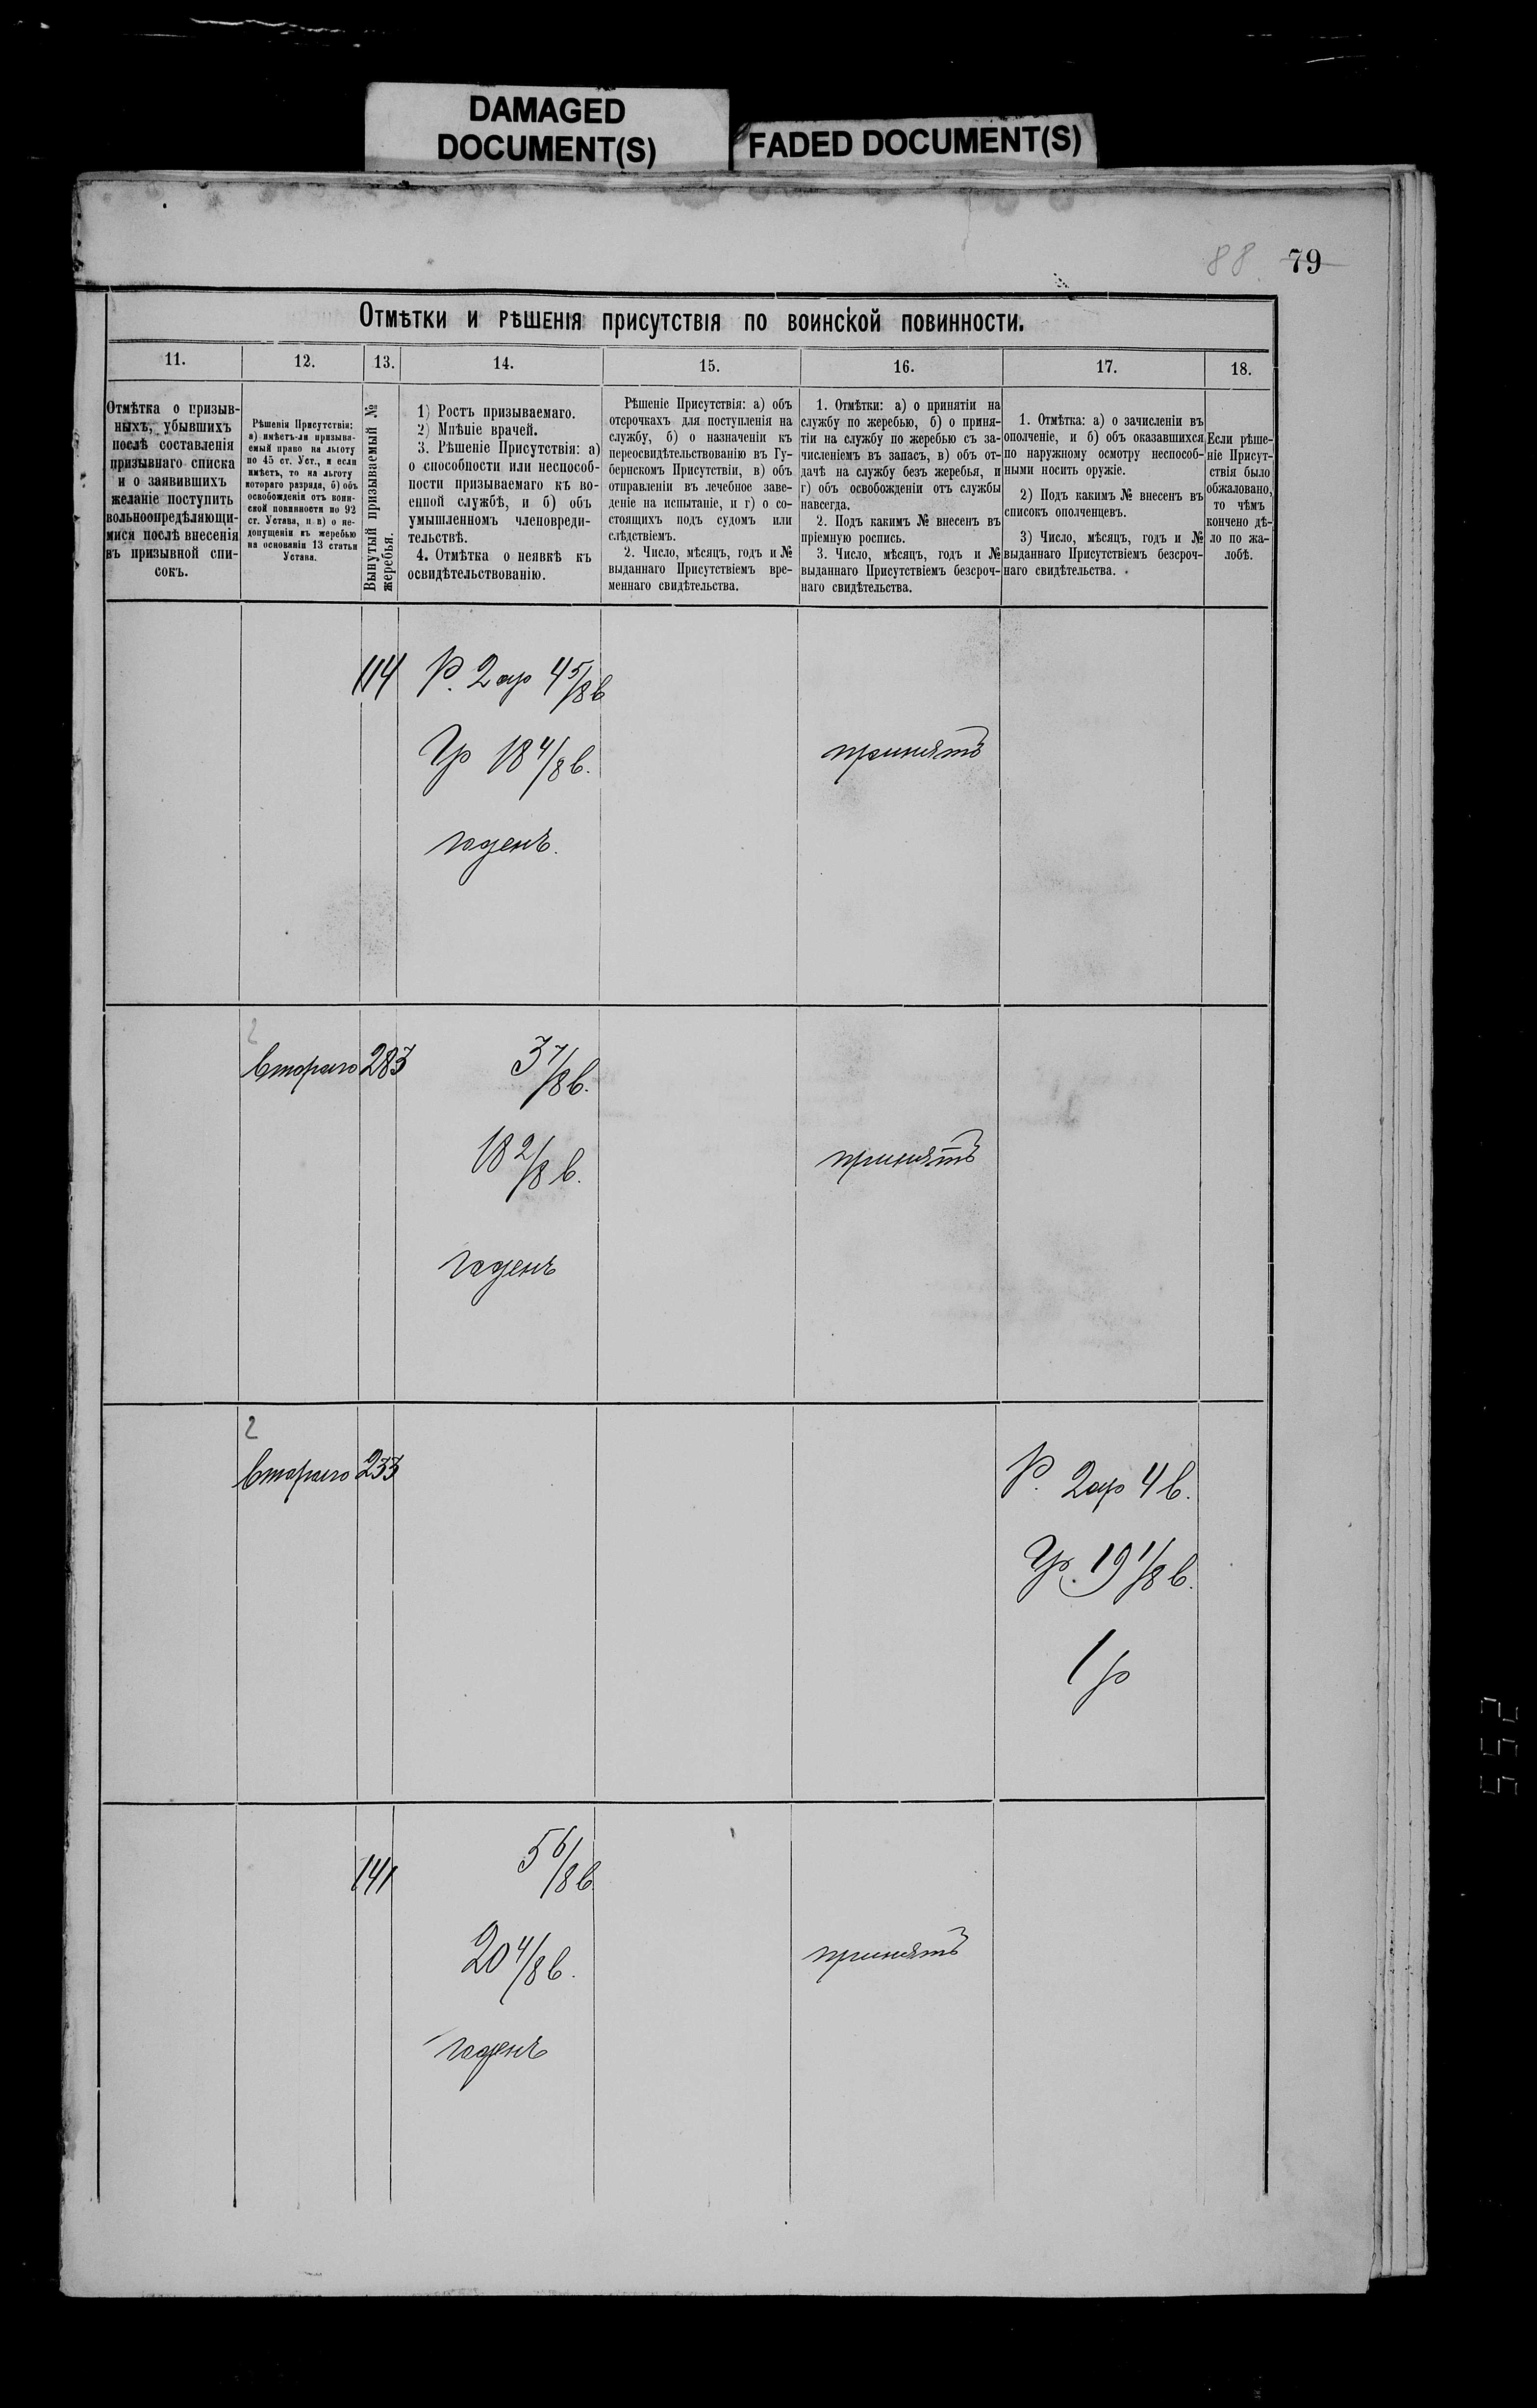 DAMAGED
DOCUMENT(S)
FADED DOCUMENT(S)
88 79
Отмѣтки и рѣшенія присутствія по воинской повинности.
11.
12.
13.
14.
15.
16.
17.
18.
Отмѣтка о призыв-
ныхъ, убывшихъ
послѣ составленія
призывнаго списка
и о заявившихъ
желаніе поступить
вольноопредѣляющи-
мися послѣ внесенія
въ призывной спи-
сокъ.
Рѣшенія Присутствія:
а) имѣетъ-ли призыва-
емый право на льготу
по 45 ст. Уст., и если
имѣетъ, то на льготу
котораго разряда, б) объ
освобожденіи отъ воин-
ской повинности по 92
ст. Устава, и в) о не-
допущеніи къ жеребью
на основаніи 13 статьи
Устава.
Вынутый призываемый №
жеребья.
1) Ростъ призываемаго.
2) Мнѣніе врачей.
3. Рѣшеніе Присутствія: а)
о способности или неспособ-
ности призываемаго къ во-
енной службѣ, и б) объ
умышленномъ членовреди-
тельствѣ.
4. Отмѣтка о неявкѣ къ
освидѣтельствованію.
Рѣшеніе Присутствія: а) объ
отсрочкахъ для поступленія на
службу, б) о назначеніи къ
переосвидѣтельствованію въ Гу-
бернскомъ Присутствіи, в) объ
отправленіи въ лечебное заве-
деніе на испытаніе, и г) о со-
стоящихъ подъ судомъ или
слѣдствіемъ.
2. Число, мѣсяцъ, годъ и №
выданнаго Присутствіемъ вре-
меннаго свидѣтельства.
1. Отмѣтки: а) о принятіи на
службу по жеребью, б) о приня-
тіи на службу по жеребью съ за-
численіемъ въ запасъ, в) объ от-
дачѣ на службу безъ жеребья, и
г) объ освобожденіи отъ службы
навсегда.
2. Подъ какимъ № внесенъ въ
пріемную роспись.
3. Число, мѣсяцъ, годъ и №
выданнаго Присутствіемъ безсроч-
наго свидѣтельства.
1. Отмѣтка: а) о зачисленіи въ
ополченіе, и б) объ оказавшихся
по наружному осмотру неспособ-
ными носить оружіе.
2) Подъ какимъ № внесенъ въ
списокъ ополченцевъ.
3) Число, мѣсяцъ, годъ и №
выданнаго Присутствіемъ безсроч-
наго свидѣтельства.
Если рѣше-
ніе Присут-
ствія было
обжаловано,
то чѣмъ
кончено дѣ-
ло по жа-
лобѣ.
114 Р. 2 ар 4 5/8 в
Гр 18 4/8 в.
принятъ
годенъ.
2
втораго 283 3 7/8 в.
18 2/8 в.
принятъ
годенъ
2
втораго 233 Р. 2 ар 4 в.
Гр. 19 1/8 в.
1 р
141 5 6/8 в.
20 4/8 в.
принятъ
годенъ
552